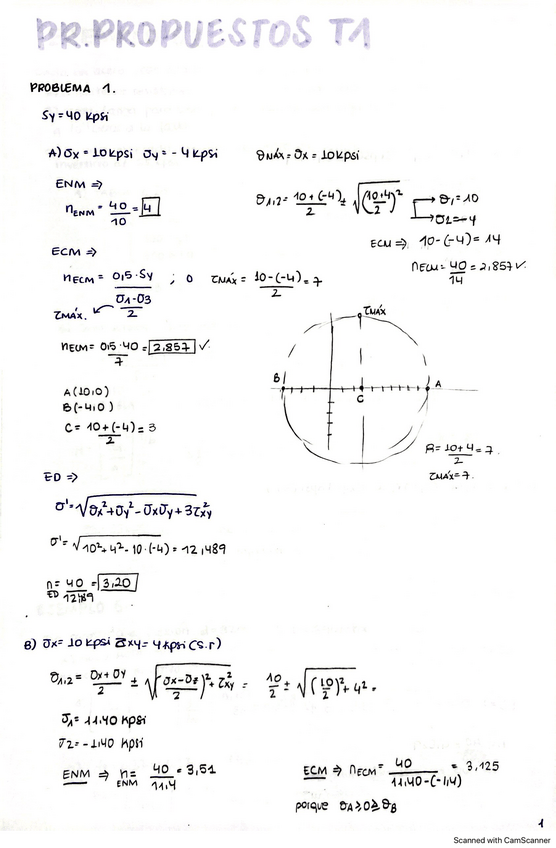 PR.PROPUESTOS T1
PROBLEMA 1.
Sy=40 Kpsi
A) σx = 10 Kpsi σy = -4 Kpsi
σMÁX = σx = 10 Kpsi
ENM ⇒
nENM = 40/10 = 4
σ1,2 = 10+(-4)/2 ± √(10+4/2)² → σ1=10
→ σ2=-4
ECM ⇒ 10-(-4) = 14
nECM = 40/14 = 2,857 ✓
ECM ⇒
nECM = 0,5·Sy / σ1-σ3/2 ; o τMÁX = 10-(-4)/2 = 7
τMÁX.
nECM = 0,5·40/7 = 2,857 ✓
A (10,0)
B (-4,0)
C = 10+(-4)/2 = 3
τMÁX
B
C
A
R = 10+4/2 = 7.
τMÁX = 7.
ED ⇒
σ' = √σx²+σy²-σxσy+3τ²xy
σ' = √10²+4²-10·(-4) = 12,489
nED = 40/12,489 = 3,20
B) σx = 10 Kpsi τxy = 4 Kpsi (s.r)
σ1,2 = σx+σy/2 ± √(σx-σy/2)²+τ²xy = 10/2 ± √(10/2)²+4² =
σ1 = 11.40 Kpsi
σ2 = -1,40 Kpsi
ENM ⇒ nENM = 40/11,4 = 3,51
ECM ⇒ nECM = 40/11,40-(-1,4) = 3,125
porque σA ≥ 0 ≥ σB
1
Scanned with CamScanner